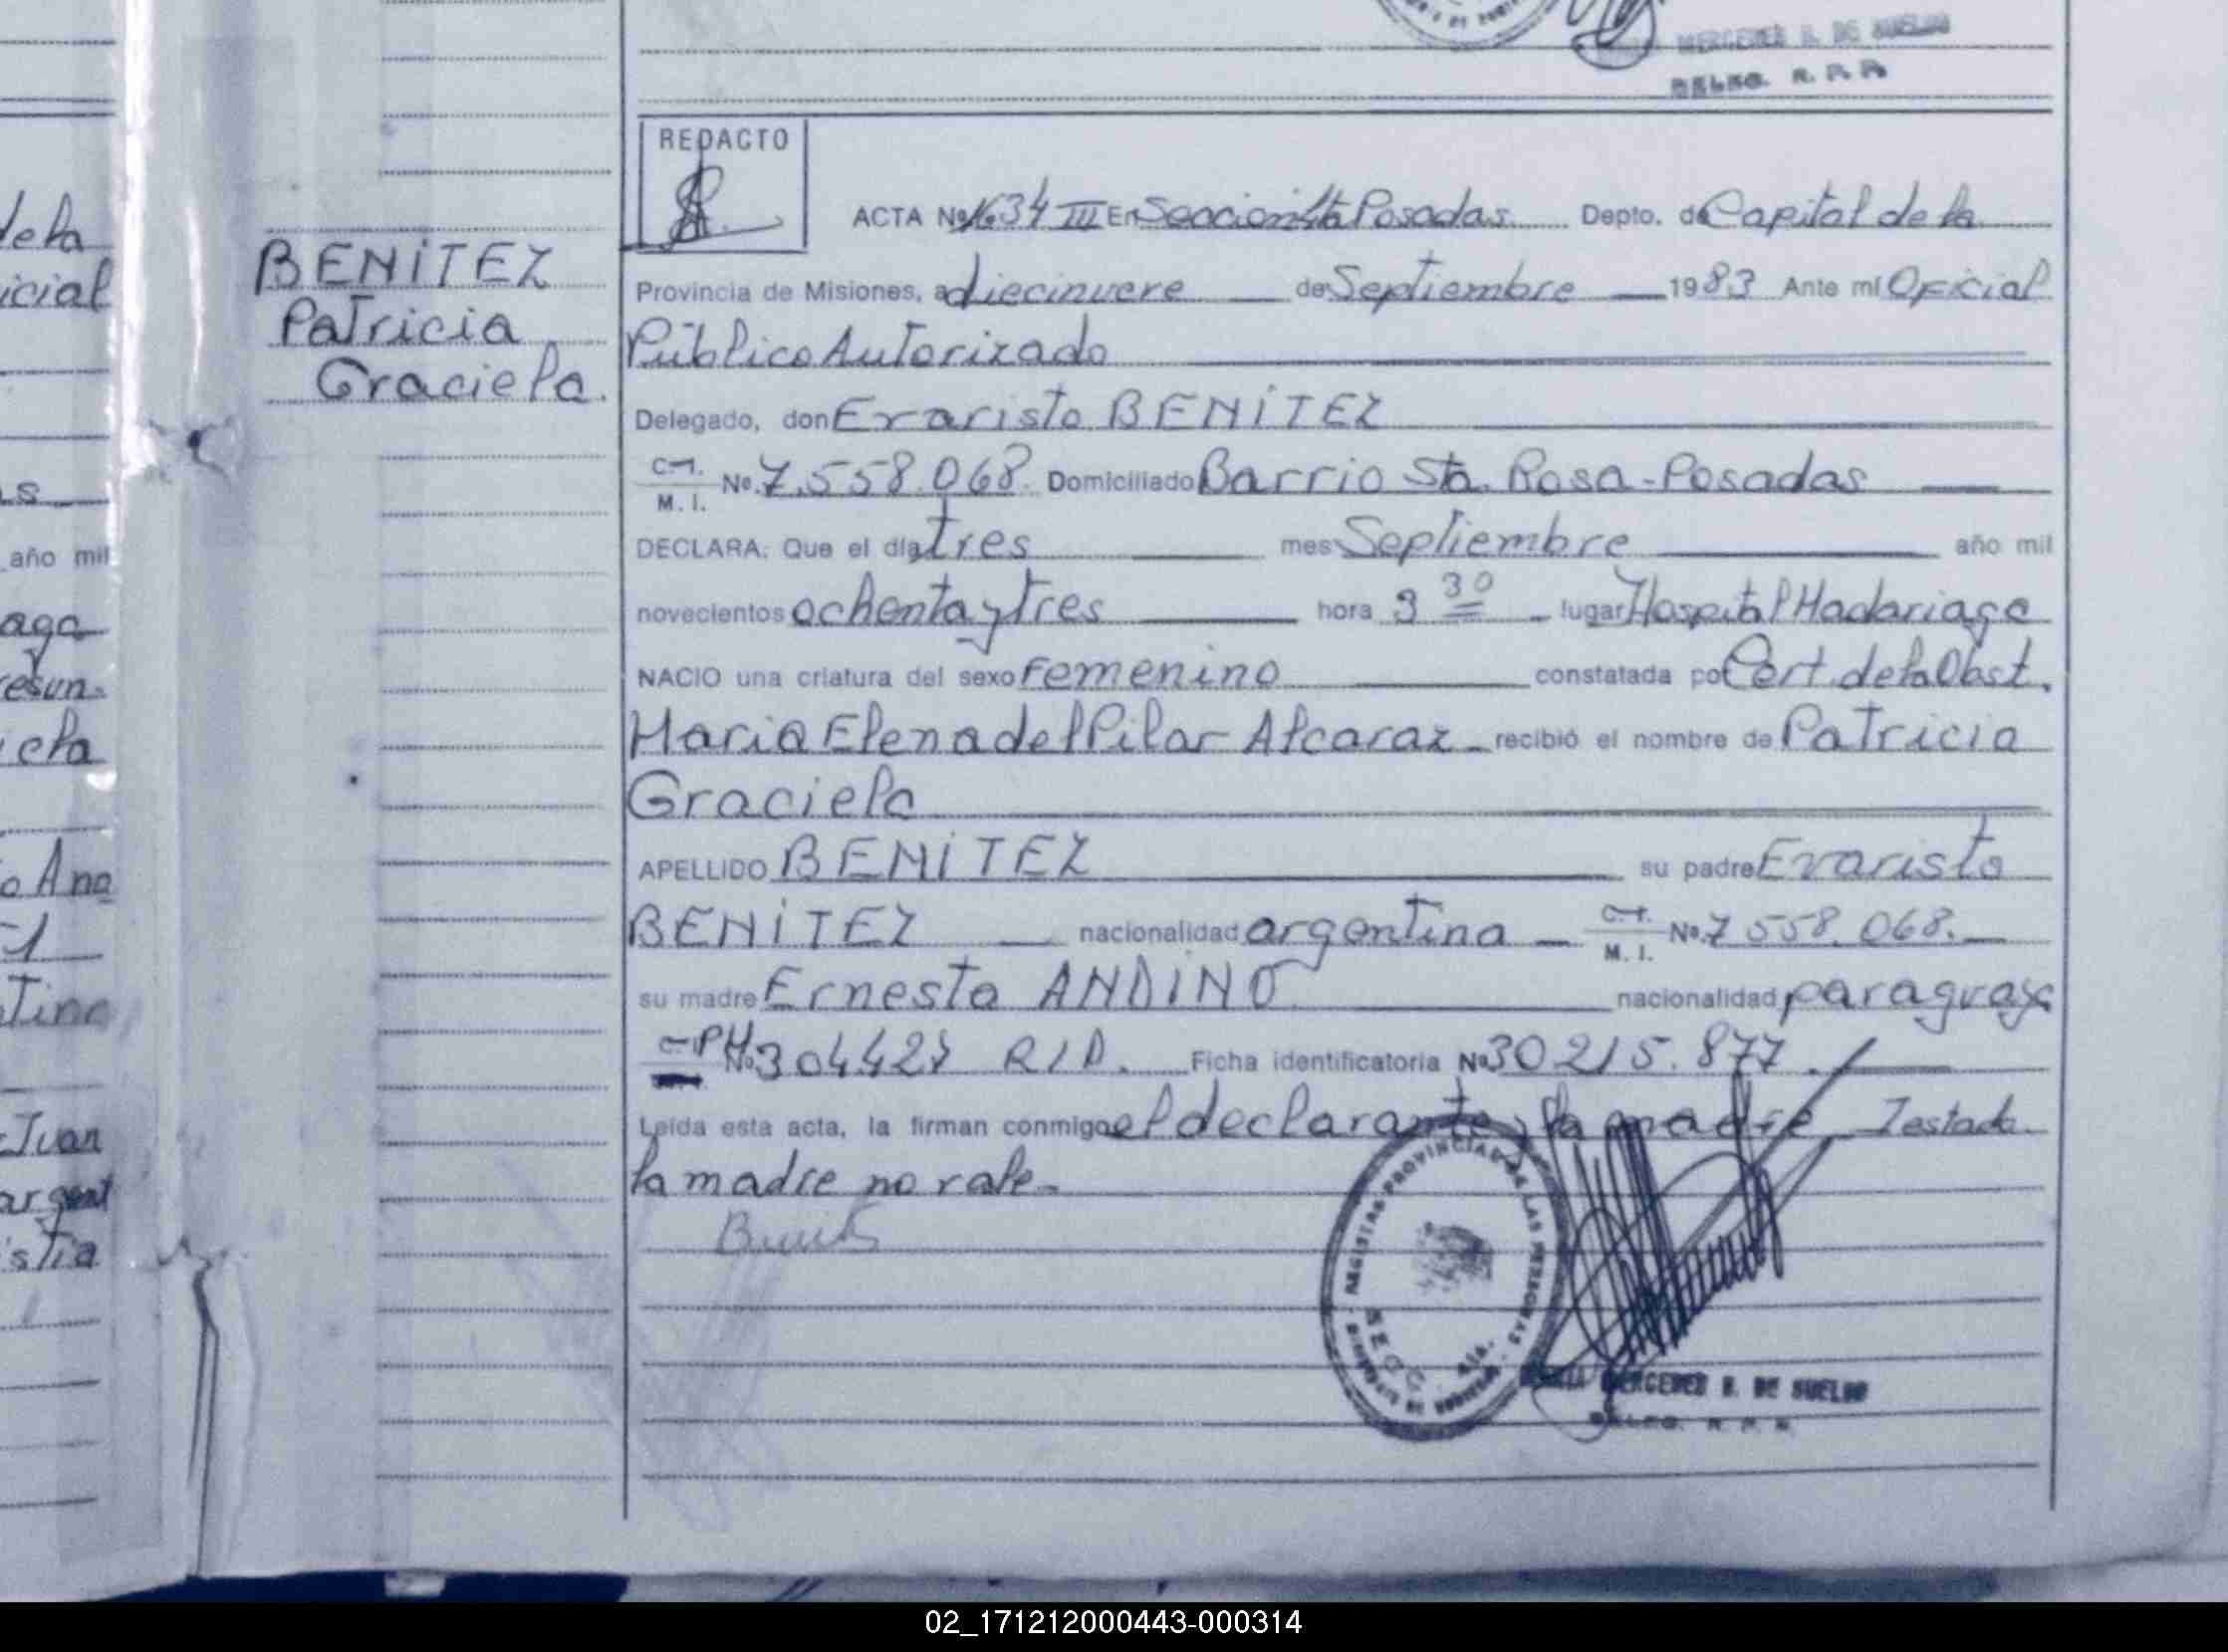 MERCEDES R. DE SUELDO
DELEG. R. P. P.
REDACTO
ACTA Nº 1634 III En Sección 4ta Posadas Depto. de Capital de la
BENÍTEZ
Patricia
Graciela.
Provincia de Misiones, a diecinueve de Septiembre 1983 Ante mí Oficial
Público Autorizado
Delegado, don Evaristo BENÍTEZ
C.I. M. I. Nº 7.558.068. Domiciliado Barrio Sta. Rosa-Posadas
DECLARA: Que el día tres mes Septiembre año mil
novecientos ochenta y tres hora 3 30 lugar Hospital Madariaga
NACIO una criatura del sexo Femenino constatada por Cert. de la Obst.
Maria Elena del Pilar Alcaraz recibió el nombre de Patricia
Graciela
APELLIDO BENÍTEZ su padre Evaristo
BENÍTEZ nacionalidad argentina C.I. M. I. Nº 7 558.068.
su madre Ernesta ANDINO nacionalidad paraguaya
Nº 304424 R/D. Ficha identificatoria Nº 30 215.877
Leída esta acta, la firman conmigo el declarante y la madre Testado
la madre no vale-
REGISTRO PROVINCIAL DE LAS PERSONAS
SECC. 4ta.
MARIA MERCEDES R. DE SUELDO
DELEG. R. P. P.
de la
icial
s
año mil
aga
esun.
iela
o Ana
tina
Juan
argent
istia
02_171212000443-000314